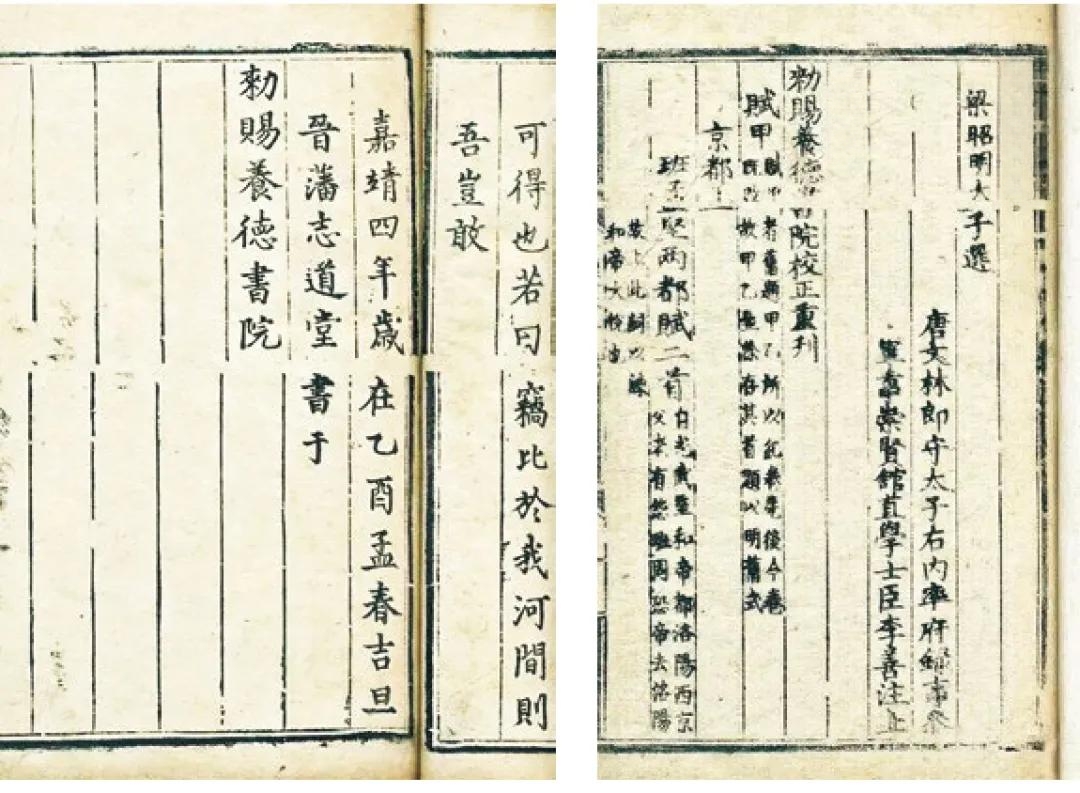 可得也若曰竊比於我河間則
吾豈敢
嘉靖四年歲在乙酉孟春吉旦
晉藩志道堂書于
勑賜養德書院
梁昭明太子選
唐文林郎守太子右內率府錄事參
軍事崇賢館直學士臣李善注上
勑賜養德書院校正重刊
賦甲
賦甲者舊題甲乙所以紀卷先後今卷
既改故甲乙並除存其首題以明舊式
京都上
班孟堅兩都賦二首
自光武至和帝都洛陽西京
父老有怨班固恐帝去洛陽
故上此詞以諫
和帝大悅也